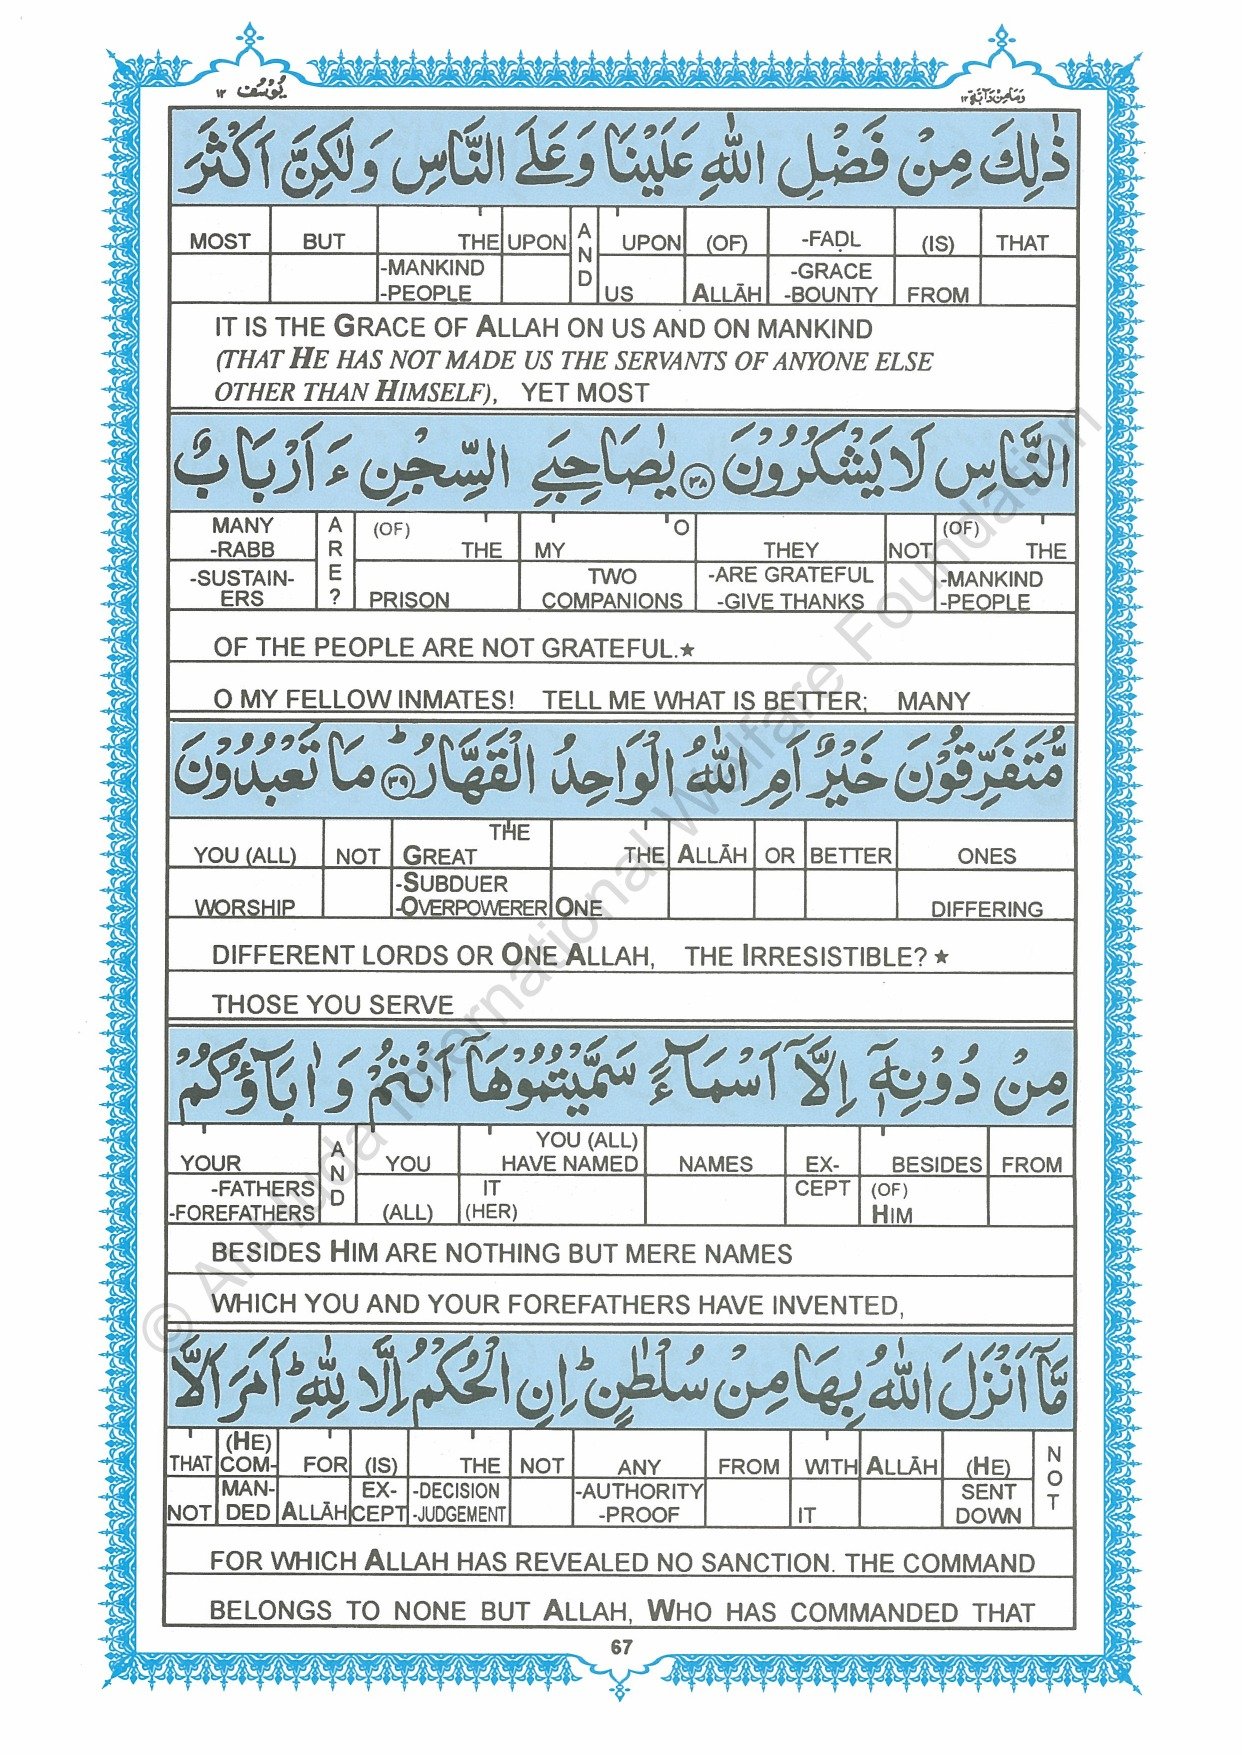 يُوسُف ١٢
وَمَا مِنْ دَآبَّةٍ ١٢
ذٰلِكَ مِنْ فَضْلِ اللّٰهِ عَلَيْنَا وَ عَلَى النَّاسِ وَلٰكِنَّ اَكْثَرَ
MOST BUT THE UPON AND UPON (OF) -FAḌL (IS) THAT
-MANKIND -PEOPLE US ALLĀH -GRACE -BOUNTY FROM
IT IS THE GRACE OF ALLAH ON US AND ON MANKIND
(THAT HE HAS NOT MADE US THE SERVANTS OF ANYONE ELSE
OTHER THAN HIMSELF), YET MOST
النَّاسِ لَا يَشْكُرُوْنَ ٣٨ يٰصَاحِبَيِ السِّجْنِ ءَ اَرْبَابٌ
MANY -RABB ARE? (OF) THE MY O THEY NOT (OF) THE
-SUSTAIN-ERS PRISON TWO COMPANIONS -ARE GRATEFUL -GIVE THANKS -MANKIND -PEOPLE
OF THE PEOPLE ARE NOT GRATEFUL.★
O MY FELLOW INMATES! TELL ME WHAT IS BETTER; MANY
مُّتَفَرِّقُوْنَ خَيْرٌ اَمِ اللّٰهُ الْوَاحِدُ الْقَهَّارُ ؕ ٣٩ مَا تَعْبُدُوْنَ
YOU (ALL) NOT THE GREAT THE ALLĀH OR BETTER ONES
WORSHIP -SUBDUER -OVERPOWERER ONE DIFFERING
DIFFERENT LORDS OR ONE ALLAH, THE IRRESISTIBLE? ★
THOSE YOU SERVE
مِنْ دُوْنِهٖۤ اِلَّاۤ اَسْمَآءً سَمَّيْتُمُوْهَاۤ اَنْتُمْ وَ اٰبَآؤُكُمْ
YOUR AND YOU YOU (ALL) HAVE NAMED NAMES EX- BESIDES FROM
-FATHERS -FOREFATHERS (ALL) IT (HER) CEPT (OF) HIM
BESIDES HIM ARE NOTHING BUT MERE NAMES
WHICH YOU AND YOUR FOREFATHERS HAVE INVENTED,
مَّاۤ اَنْزَلَ اللّٰهُ بِهَا مِنْ سُلْطٰنٍ ؕ اِنِ الْحُكْمُ اِلَّا لِلّٰهِ ؕ اَمَرَ اَلَّا
THAT (HE) COM- FOR (IS) THE NOT ANY FROM WITH ALLĀH (HE) NOT
NOT MAN-DED ALLĀH EX-CEPT -DECISION -JUDGEMENT -AUTHORITY -PROOF IT SENT DOWN
FOR WHICH ALLAH HAS REVEALED NO SANCTION. THE COMMAND
BELONGS TO NONE BUT ALLAH, WHO HAS COMMANDED THAT
67
© Al Huda International Welfare Foundation